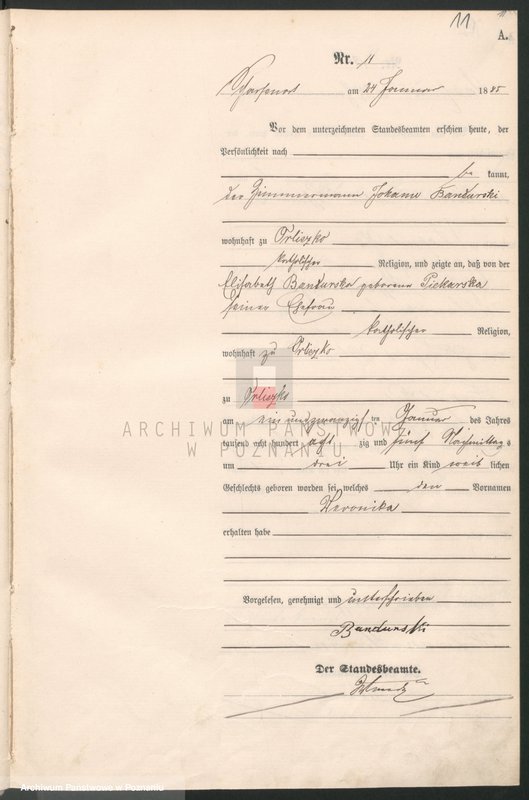 11
A.
Nr. 11
am 24 Januar 1885
Vor dem unterzeichneten Standesbeamten erschien heute, der
Persönlichkeit nach
be kannt,
der Zimmermann Johann Bandurski
wohnhaft zu Orliczko
katholischer Religion, und zeigte an, daß von der
Elisabeth Bandurska geborene Piekarska
seiner Ehefrau
katholischer Religion,
wohnhaft zu Orliczko
zu Orliczko
am ein und zwanzig ten Januar des Jahres
tausend acht hundert acht zig und fünf Nachmittag s
um drei Uhr ein Kind weib lichen
Geschlechts geboren worden sei, welches den Vornamen
Veronika
erhalten habe
Vorgelesen, genehmigt und unterschrieben
Bandurski
Der Standesbeamte.
ARCHIWUM PAŃSTWOWE
W POZNANIU
Archiwum Państwowe w Poznaniu